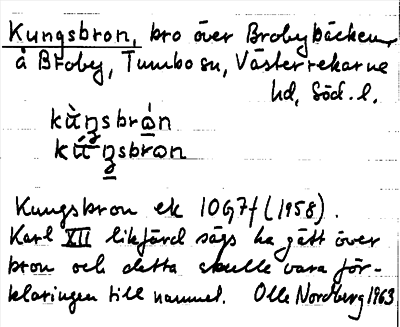 Kungsbron, bro över Brobybäcken,
å Broby, Tumbo sn, Västerrekarne
hd, Söd. l.
kùŋsbrón
kúŋsbron
Kungsbron ek 10G7f (1958).
Karl XII likfärd sägs ha gått över
bron och detta skulle vara för-
klaringen till namnet. Olle Nordberg 1963